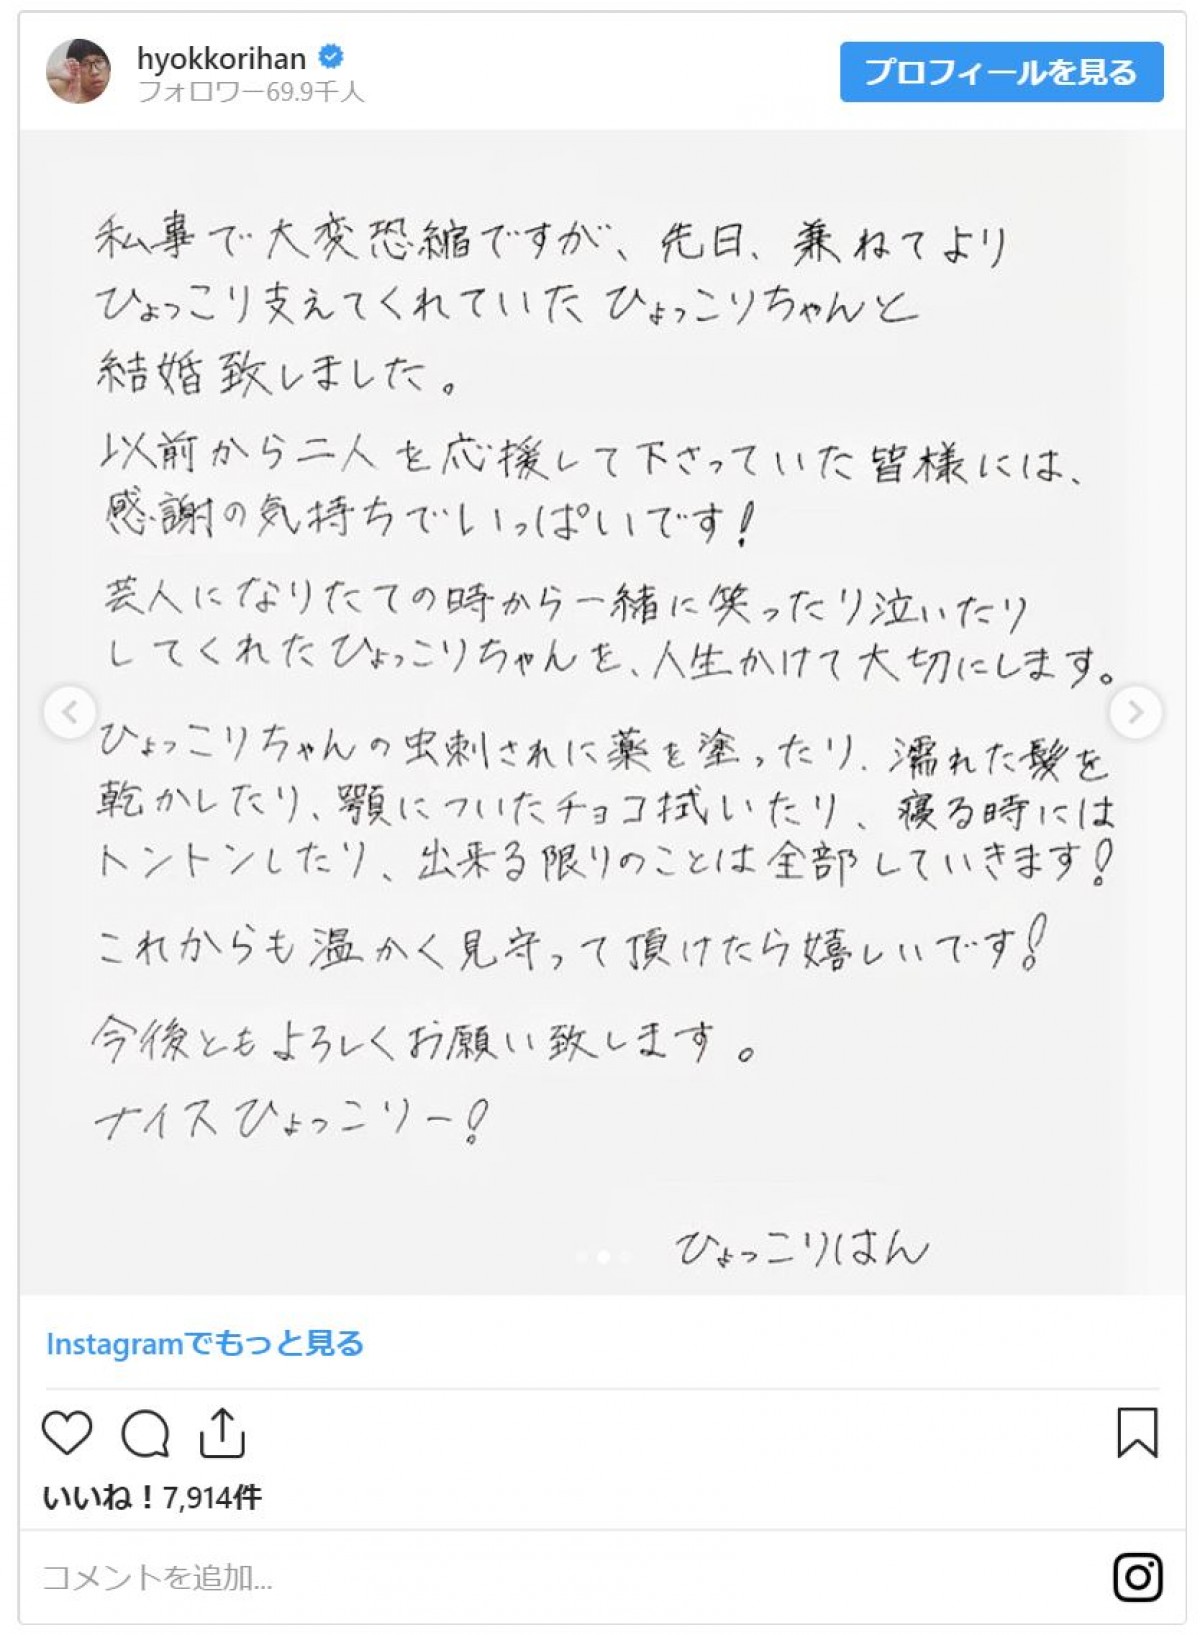 hyokkorihan
フォロワー69.9千人
プロフィールを見る
私事で大変恐縮ですが、先日、兼ねてより
ひょっこり支えてくれていたひょっこりちゃんと
結婚致しました。
以前から二人を応援して下さっていた皆様には、
感謝の気持ちでいっぱいです!
芸人になりたての時から一緒に笑ったり泣いたり
してくれたひょっこりちゃんを、人生かけて大切にします。
ひょっこりちゃんの虫刺されに薬を塗ったり、濡れた髪を
乾かしたり、顎についたチョコ拭いたり、寝る時には
トントンしたり、出来る限りのことは全部していきます!
これからも温かく見守って頂けたら嬉しいです!
今後ともよろしくお願い致します。
ナイスひょっこりー!
ひょっこりはん
Instagramでもっと見る
いいね！7,914件
コメントを追加...